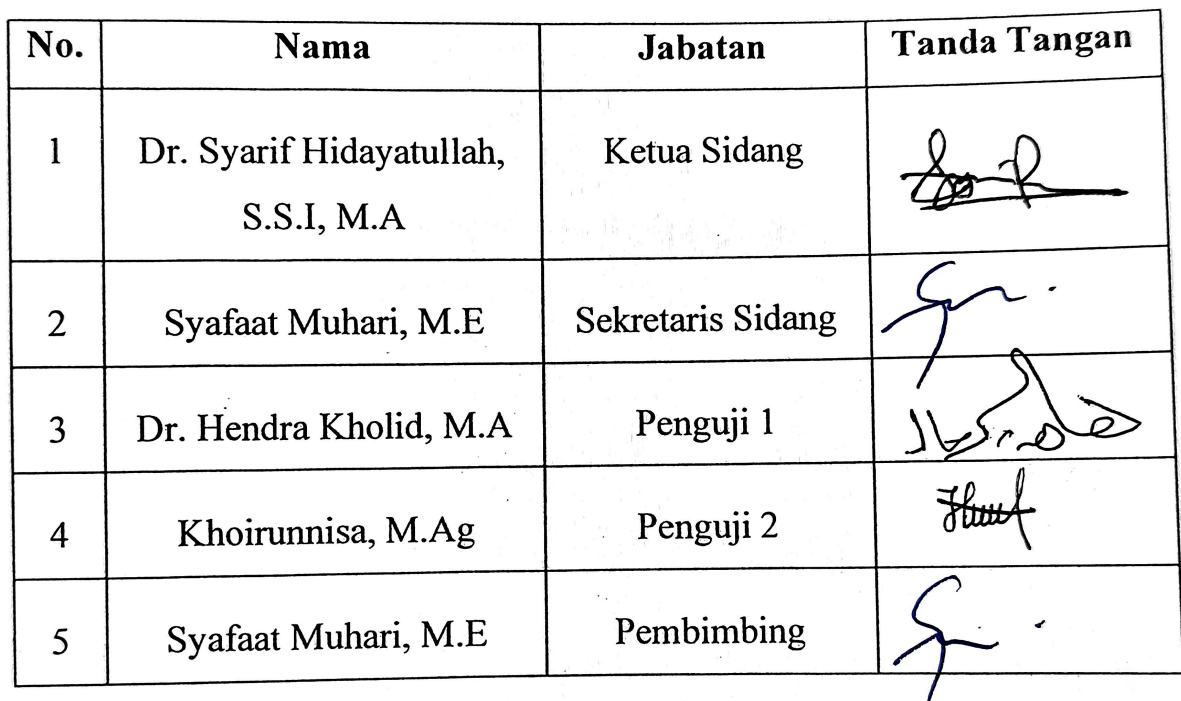 No. Nama Jabatan Tanda Tangan
1 Dr. Syarif Hidayatullah, Ketua Sidang
S.S.I, M.A
2 Syafaat Muhari, M.E Sekretaris Sidang
3 Dr. Hendra Kholid, M.A Penguji 1
4 Khoirunnisa, M.Ag Penguji 2
5 Syafaat Muhari, M.E Pembimbing